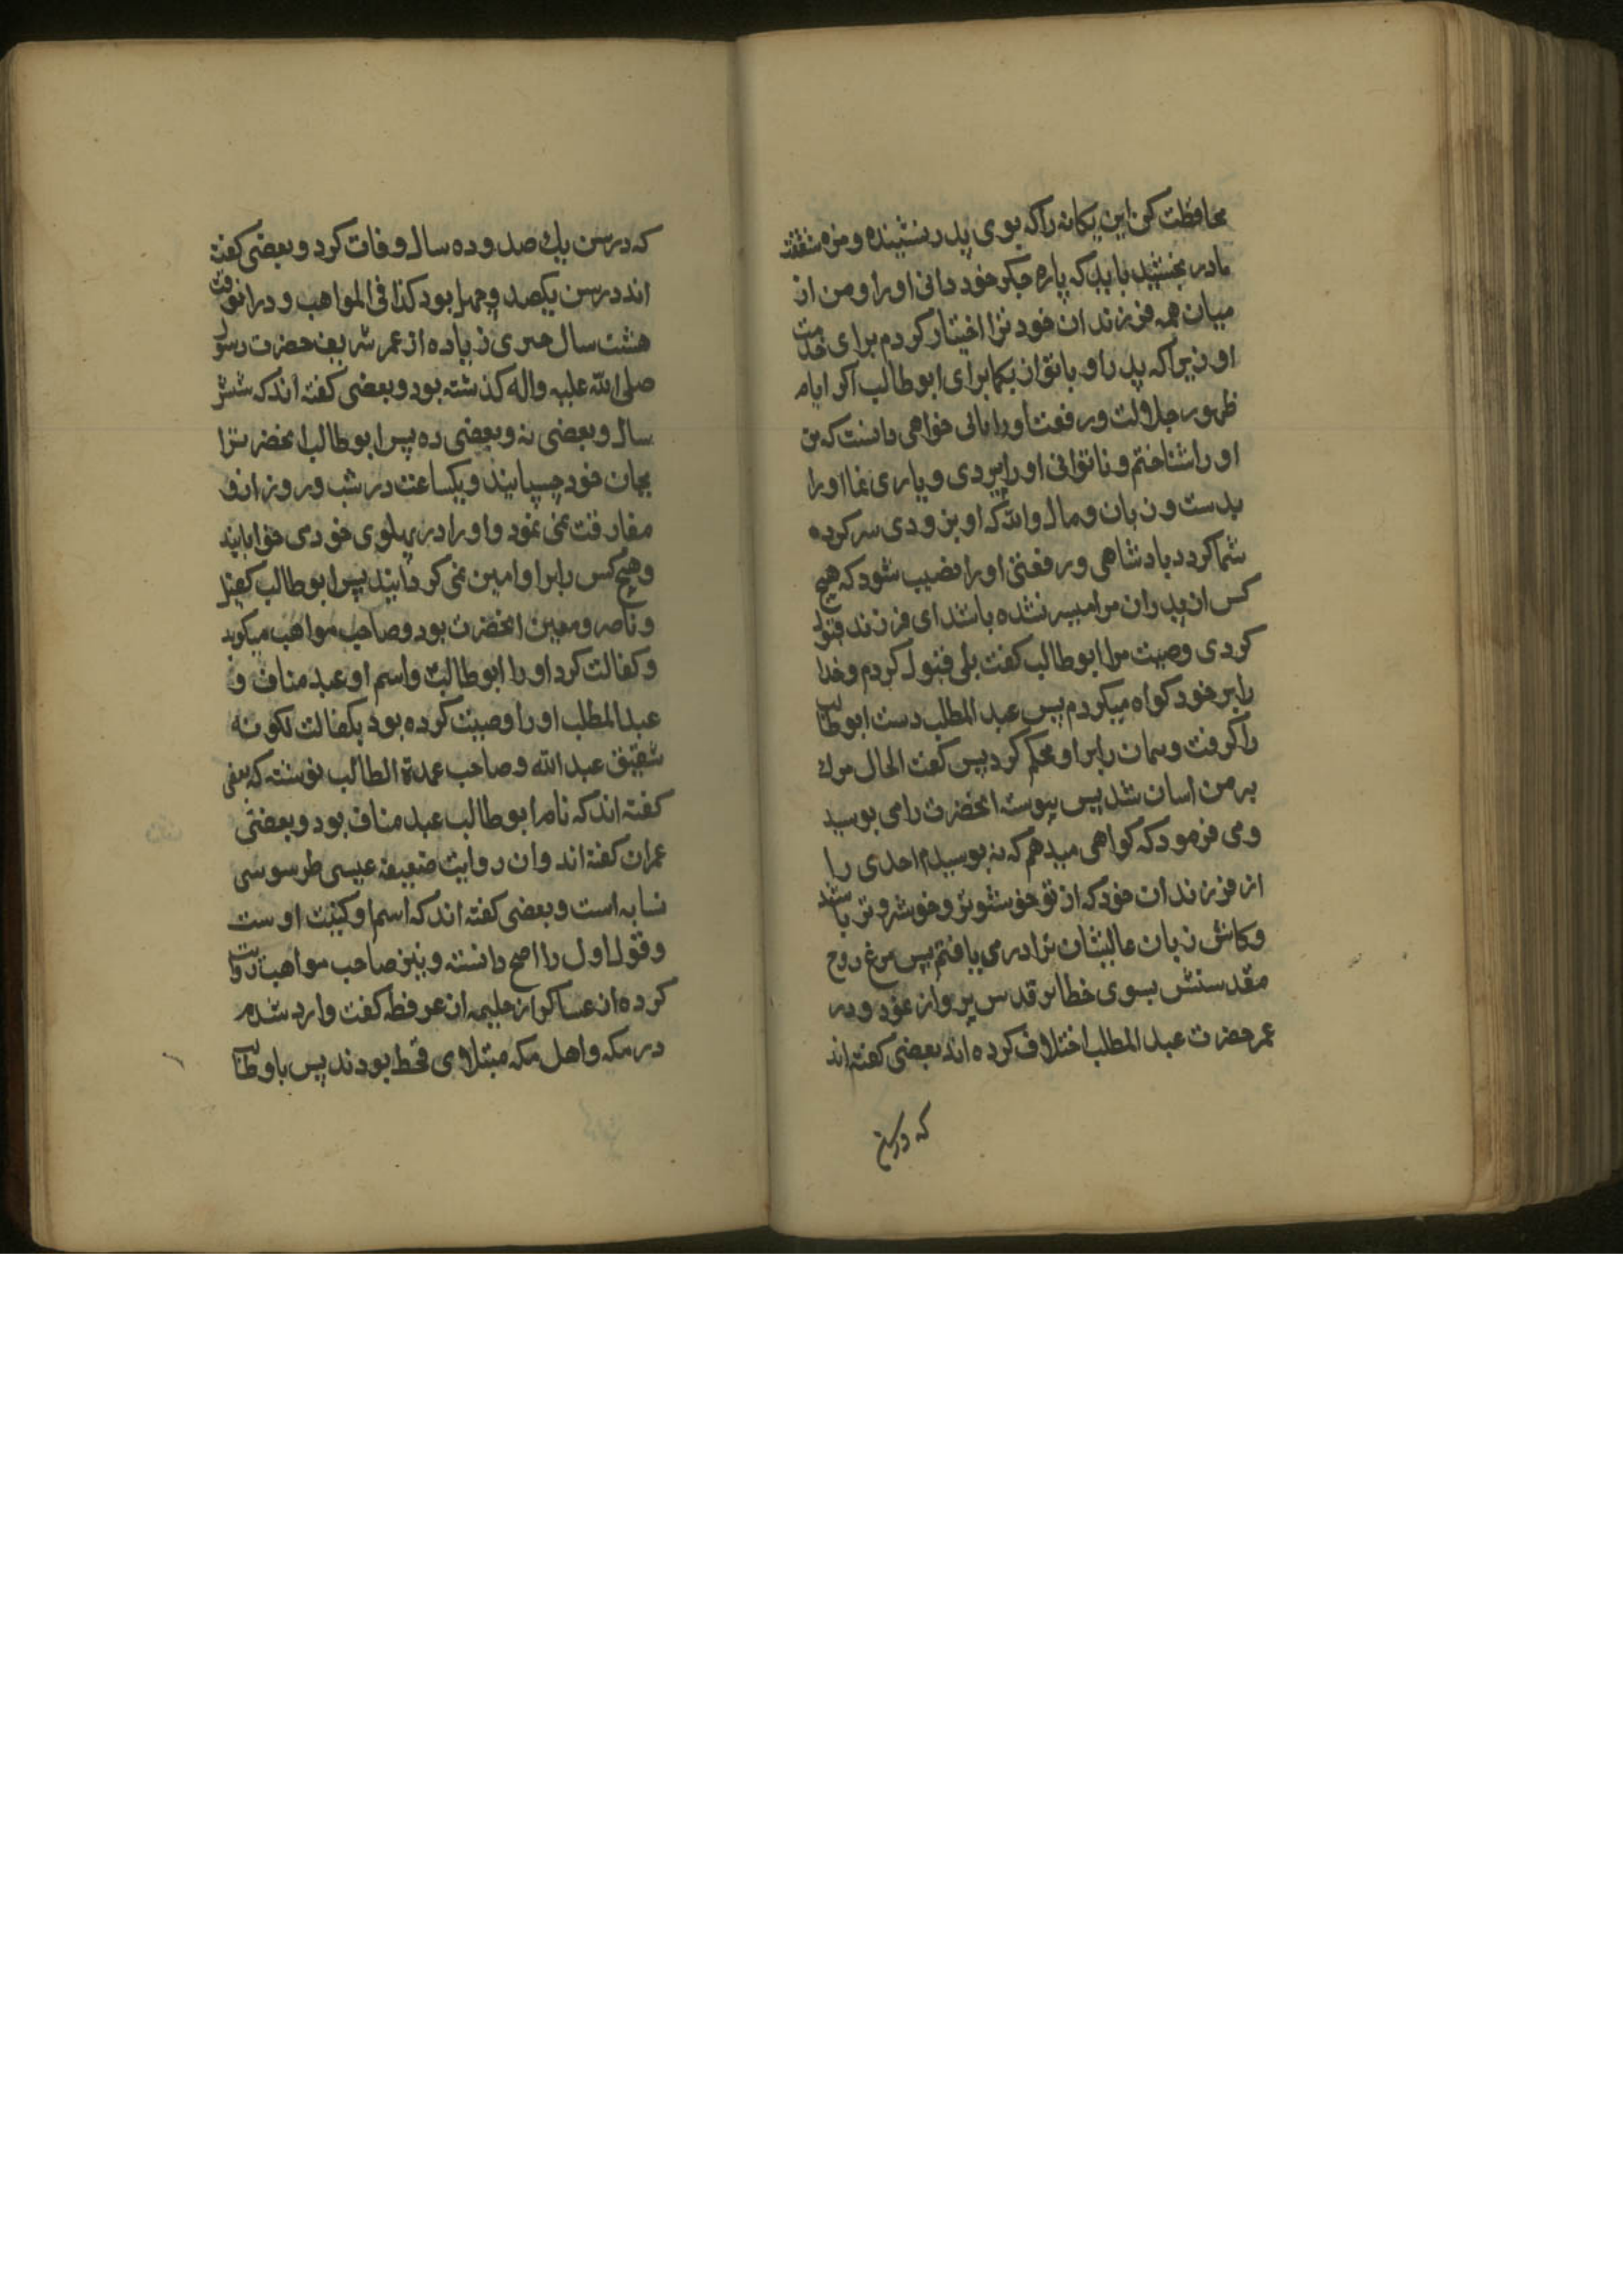 محافظت کن این یکانه را که بوی پدر نشنیده و مزه شفقت
مادر نچشید باید که پاره جکر خود دانی او را و من از
میان همه فرزندان خود ترا اختیار کردم برای خدمت
او زیرا که پدر او با تو از یکمابرای ابوطالب اکر ایام
ظهور جلالت و رفعت او را یابی خواهی دانست که من
او را شناختم و تا توانی او را پیروی و یاری نما او را
بدست و زبان و مال والله که او بزودی سرکرده
شما کردد بادشاهی و رفعتی او را نصیب شود که هیچ
کس از پدران مرا میسر نشده باشد ای فرزند قبول
کردی وصیت مرا ابوطالب کفت بلی قبول کردم و خدا
را بر خود کواه میکردم پس عبد المطلب دست ابوطالب
را کرفت و پیمان را بر او محکم کرد پس کفت الحال مرک
بر من اسان شد پس پیوسته انحضرت را می بوسید
و می فرمود که کواهی میدهم که نه بوسیدم احدی را
از فرزندان خود که از تو خوشبوتر و خوشروتر باشد
و کاش زبان عالیشان ترا در می یافتم پس مرغ روح
مقدسش بسوی خطایر قدس پرواز نمود و در
عمر حضرت عبد المطلب اختلاف کرده اند بعضی کفته اند
که در سن
که در سن یک صد و ده سال وفات کرد و بعضی کفته
اند در سن یکصد و چهل بود کذا فی المواهب و در انوقت
هشت سال چیزی زیاده از عمر شریف حضرت رسول
صلی الله علیه واله کذشته بود و بعضی کفته اند که شش
سال و بعضی نه و بعضی ده پس ابوطالب انحضرت را
بجان خود چسپانید و یکساعت در شب و روز از و
مفارقت نمی نمود و او را در پهلوی خود می خوابانید
و هیچ کس را بر او امین نمی کردانید پس ابوطالب کفیل
و ناصر و معین انحضرت بود و صاحب مواهب میکوید
و کفالت کرد او را ابوطالب و اسم او عبد مناف و
عبد المطلب او را وصیت کرده بود بکفالت لکونه
شقیق عبد الله و صاحب عمدة الطالب نوشته که بعضی
کفته اند که نام ابوطالب عبد مناف بود و بعضی
عمران کفته اند و ان روایت ضعیفه عیسی طرسوسی
نسابه است و بعضی کفته اند که اسم او کنیت اوست
و قول اول را اصح دانسته و نیز صاحب مواهب روایت
کرده از عساکر از جلیمه از عرفطه کفت وارد شدم
در مکه و اهل مکه مبتلای قحط بودند پس با وطالب